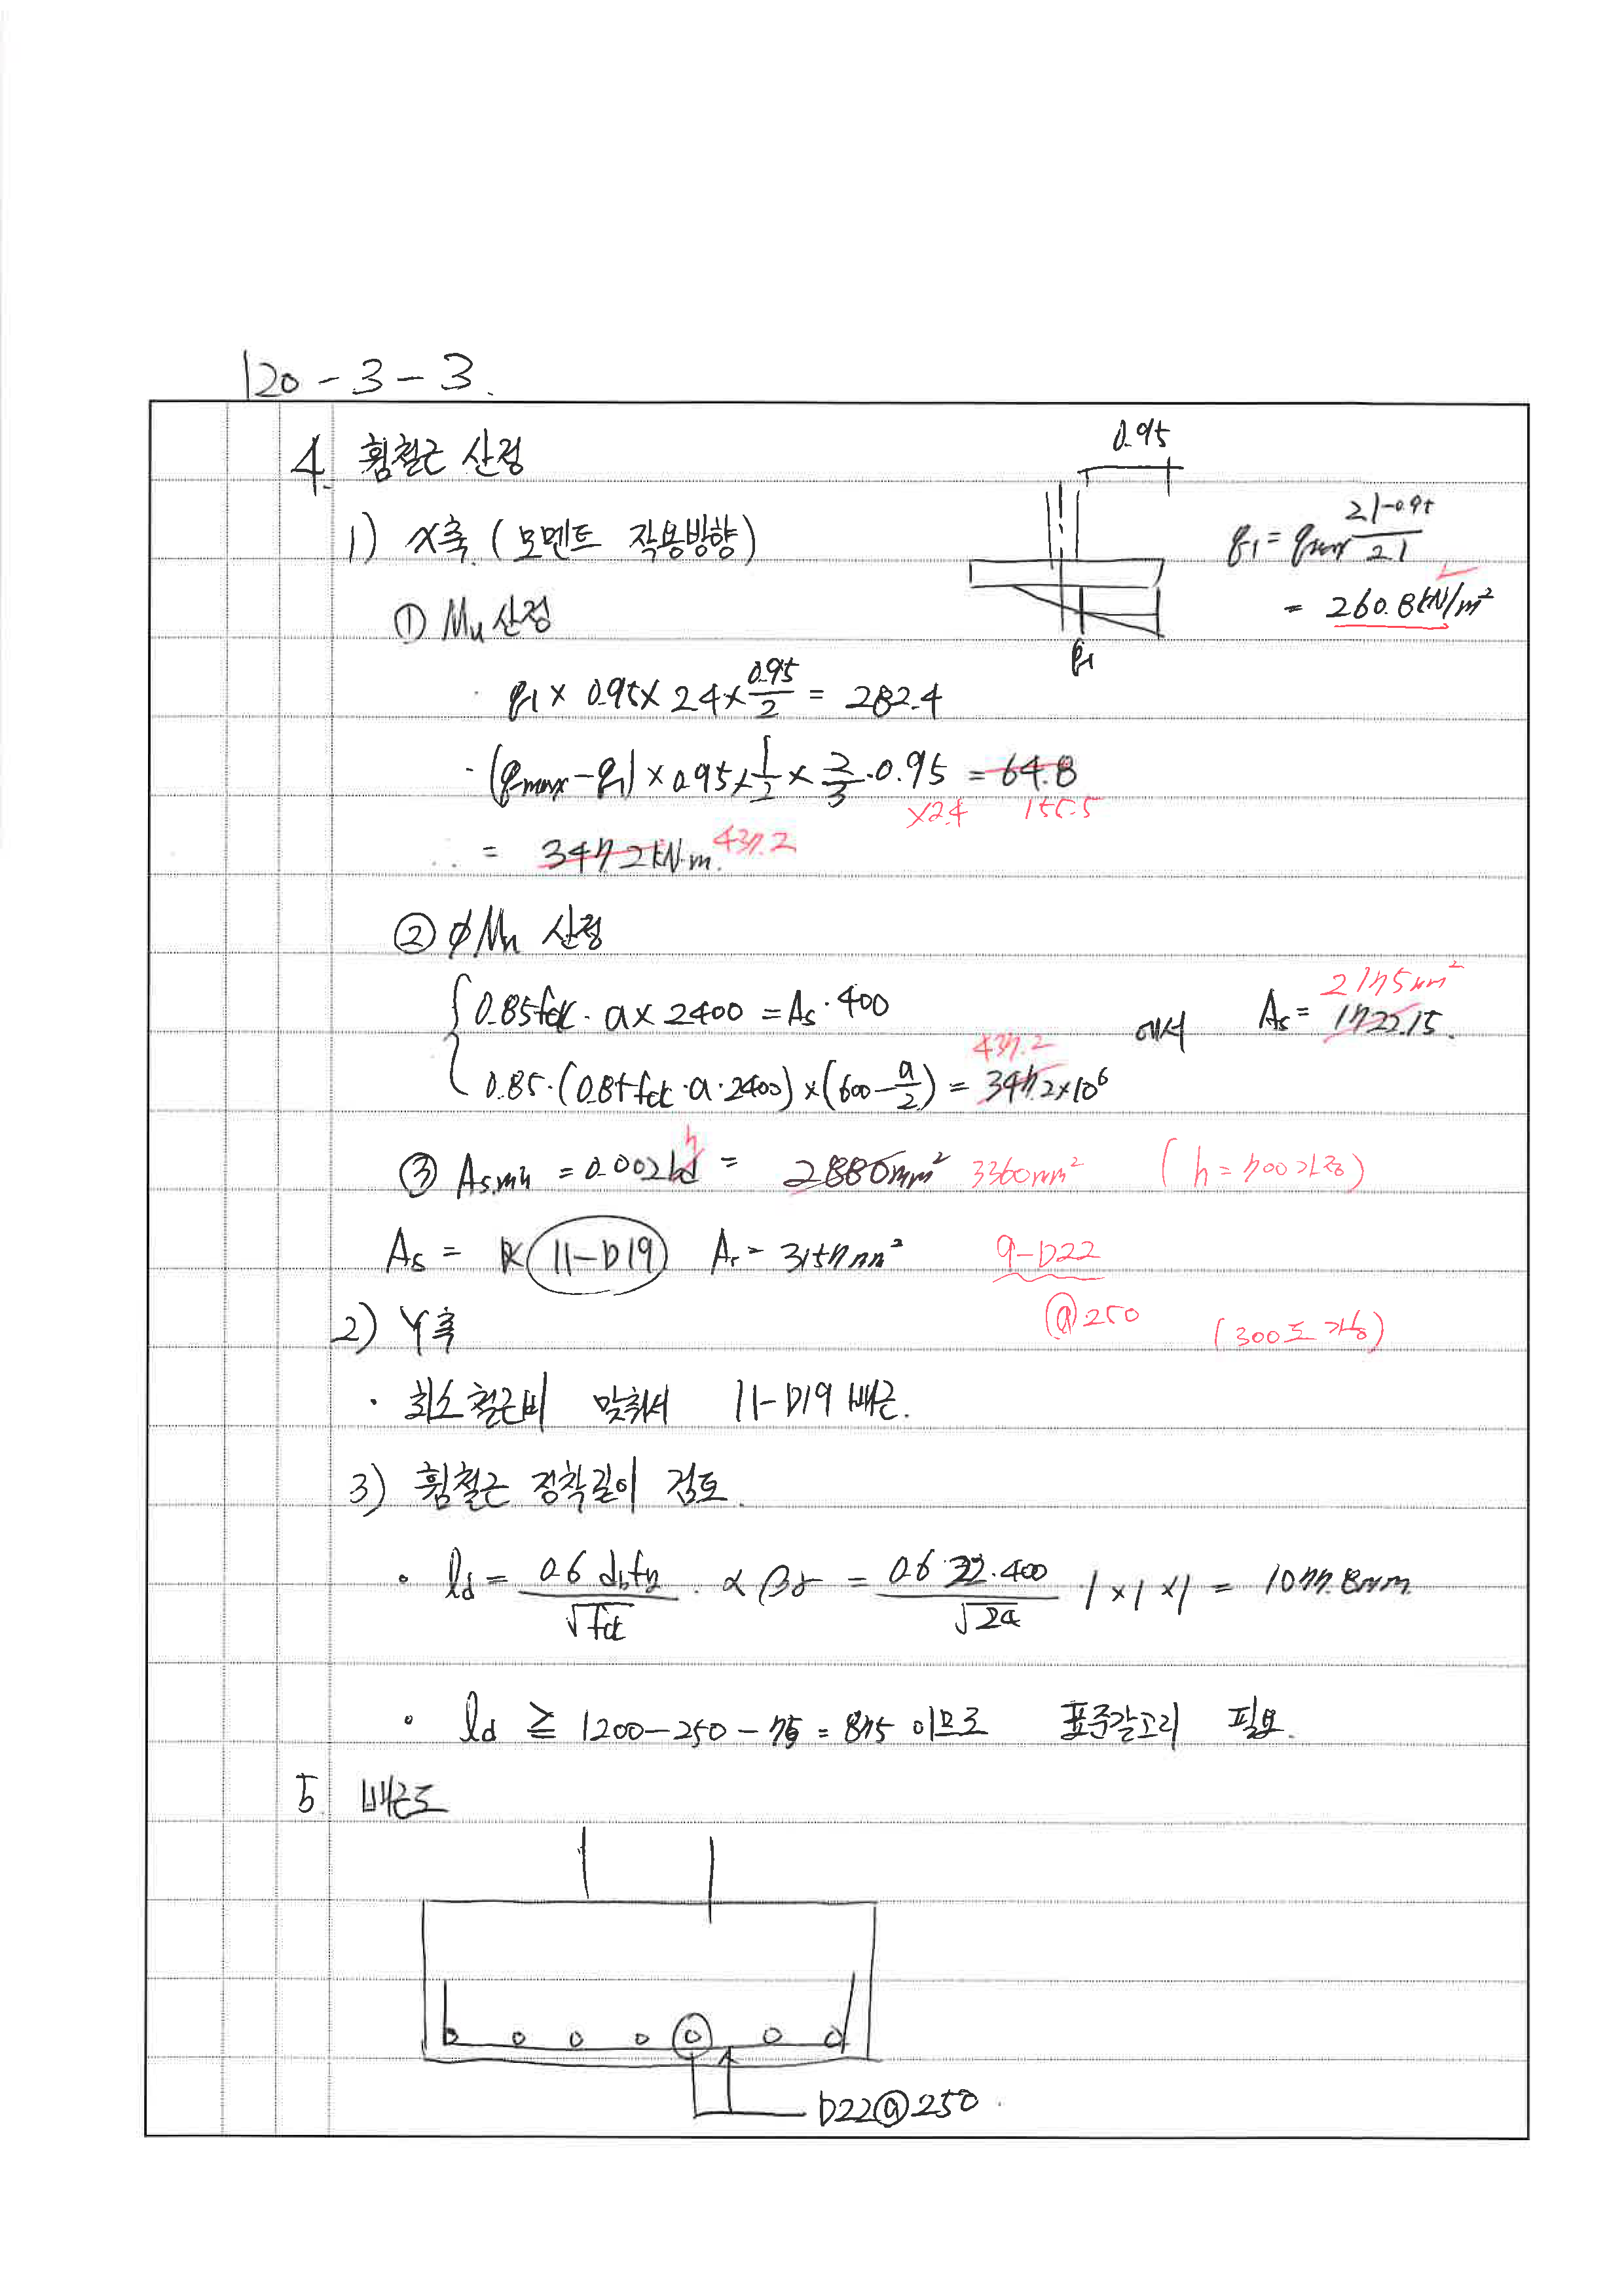 120 - 3 - 3.
4. 휨철근 산정
0.95
1) X축 (모멘트 작용방향)
q1 = qmax 2.1-0.95 / 2.1
= 260.8 kN/m²
① Mu 산정
q1
· q1 × 0.95 × 2.4 × 0.95/2 = 282.4
· (qmax - q1) × 0.95 × 1/2 × 2/3 · 0.95 = 64.8
×2.4 155.5
∴ = 347.2 kN·m. 437.2
② φMn 산정
0.85fck · a × 2400 = As · 400 에서 As = 1722.15. 2175mm²
0.85 · (0.85fck · a · 2400) × (600 - a/2) = 347.2×10⁶ 437.2
③ As,min = 0.002bd h = 2880mm² 3360mm² (h = 700 가정)
As = 11-D19 As = 3157mm² 9-D22
@250 (300도 가능)
2) Y축
· 최소철근비 맞춰서 11-D19 배근.
3) 휨철근 정착길이 검토.
· ld = 0.6 db fy / √fck · α β γ = 0.6·22·400 / √24 · 1 × 1 × 1 = 1077.8mm.
· ld ≧ 1200-250-75 = 875 이므로 표준갈고리 필요.
5. 배근도
D22@250.